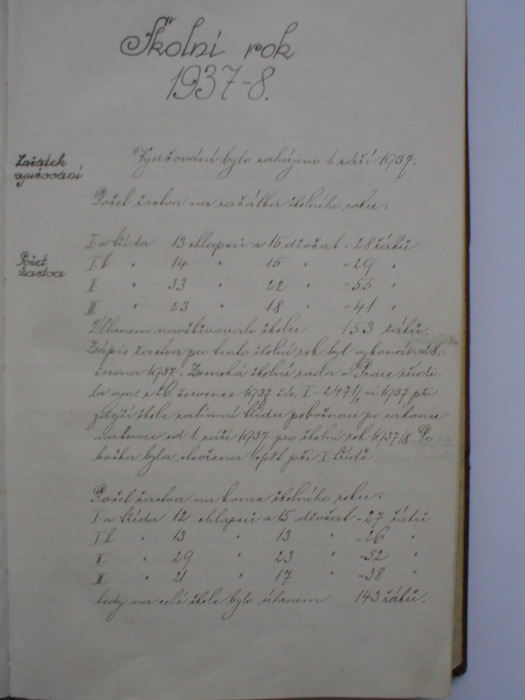 Školní rok
1937-8.
Začátek
vyučování
Vyučování bylo zahájeno 1. září 1937.
Počet žactva na začátku školního roku:
Počet
žactva
I.a třída 13 chlapců a 15 děvčat - 28 žáků
I.b " 14 " 15 " - 29 "
II. " 33 " 22 " - 55 "
III. " 23 " 18 " - 41 "
Úhrnem navštěvovalo školu 153 žáků.
Zápis žactva pro tento školní rok byl vykonán
června 1937. Zemská školní rada v Praze
26. července 1937 čís. I-2471/1 ai 1937 při
zdejší škole zatímní třídu pobočnou po zákonu
od 1. září 1937 pro školní rok 1937/8. Po
bočka byla otevřena opět při I. třídě.
Počet žactva na konci školního roku:
I.a třída 12 chlapců a 15 děvčat - 27 žáků
I.b " 13 " 13 " - 26 "
II. " 29 " 23 " - 52 "
III. " 21 " 17 " - 38 "
tedy na celé škole bylo úhrnem 143 žáků.